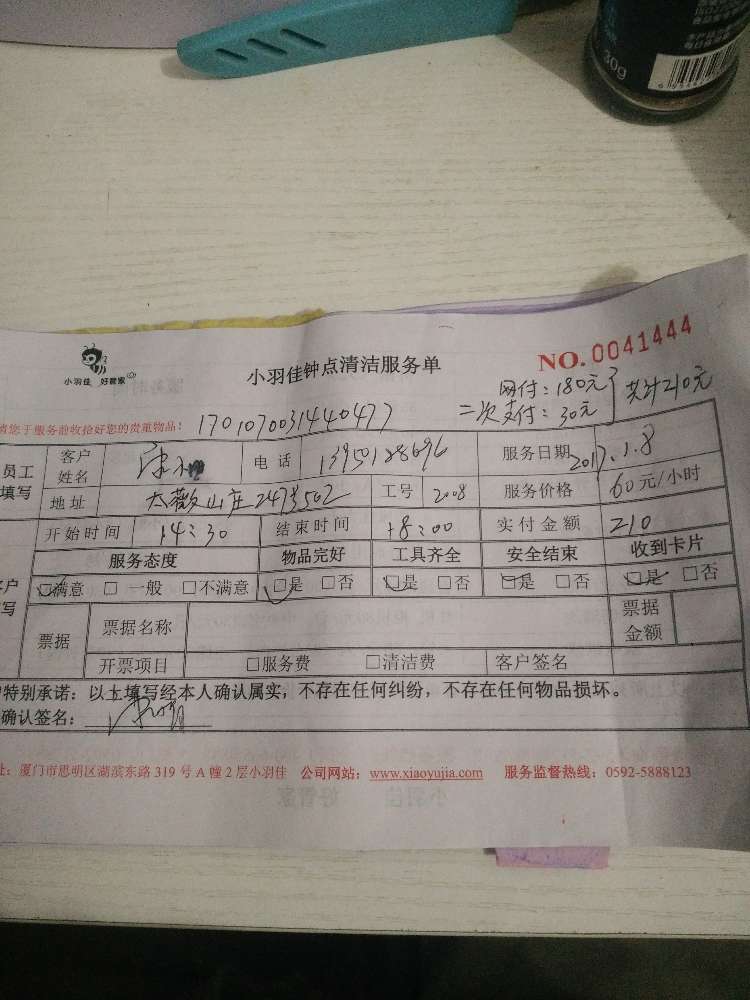 30g
小羽佳 好管家
小羽佳钟点清洁服务单
NO.0041444
网付：180元
二次支付：30元
共计210元
请您于服务前收拾好您的贵重物品：
17010700314440477
员工填写 客户姓名 电话 服务日期 2017.1.8
地址 工号 2008 服务价格 60元/小时
开始时间 14：30 结束时间 18：00 实付金额 210
服务态度 物品完好 工具齐全 安全结束 收到卡片
□满意 □一般 □不满意 □是 □否 □是 □否 □是 □否 □是 □否
票据 票据名称 票据金额
开票项目 □服务费 □清洁费 客户签名
特别承诺：以上填写经本人确认属实，不存在任何纠纷，不存在任何物品损坏。
确认签名：
址：厦门市思明区湖滨东路 319 号 A 幢 2 层小羽佳 公司网站：www.xiaoyujia.com 服务监督热线：0592-5888123